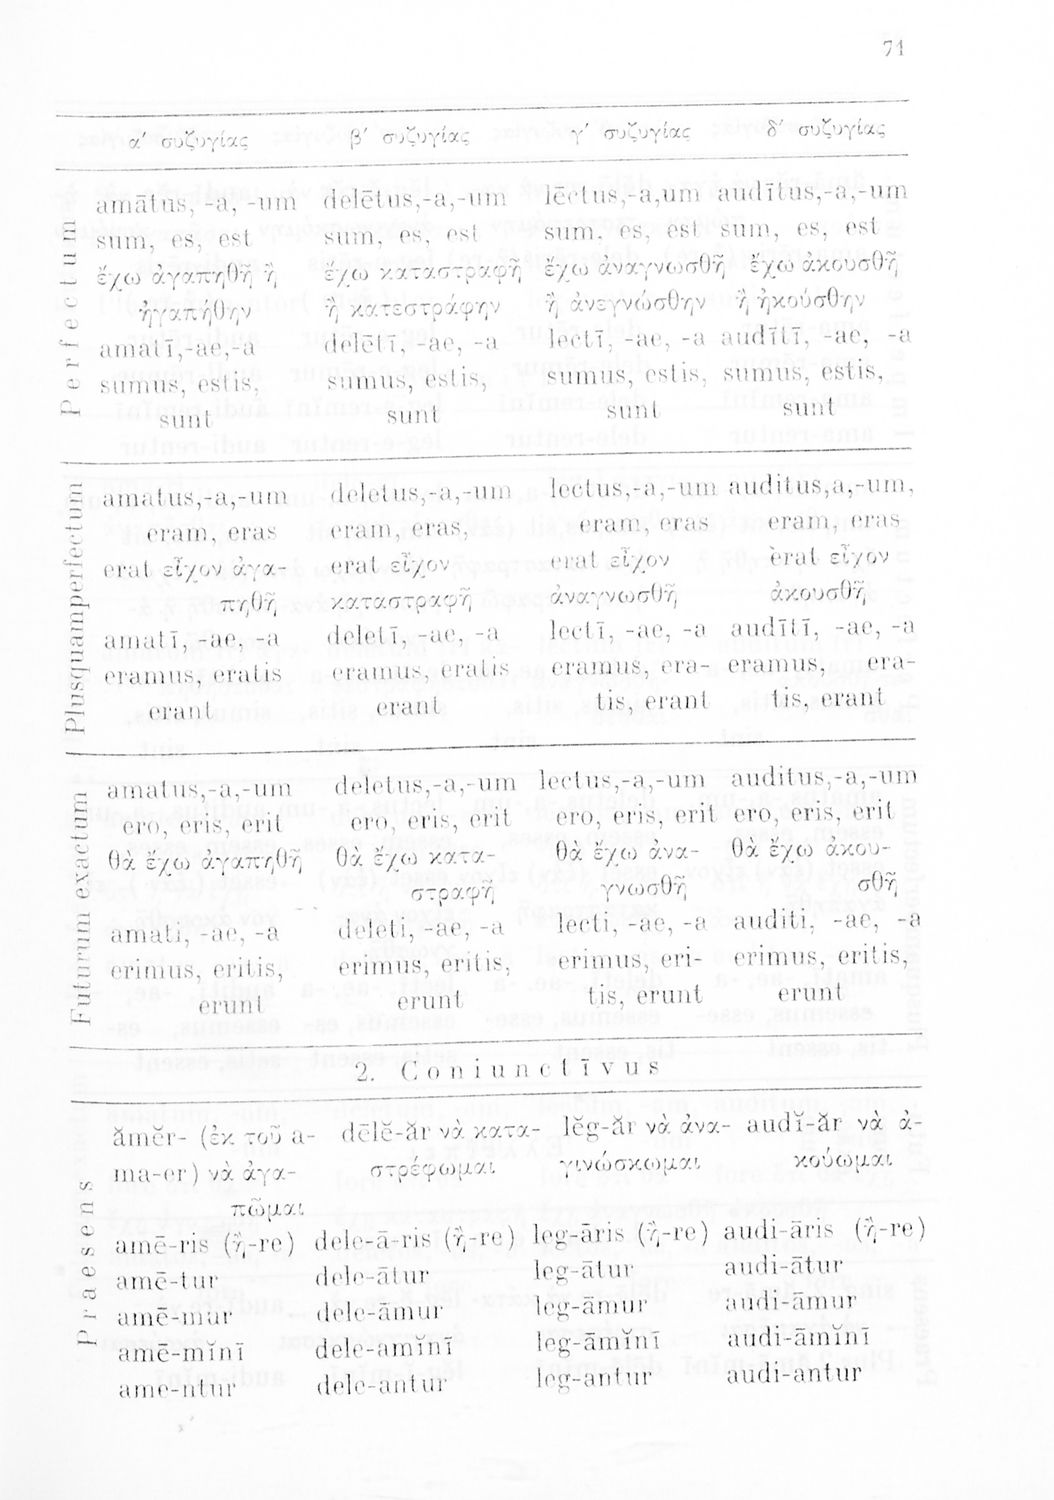 71
α′ συζυγίας β′ συζυγίας γ′ συζυγίας δ′ συζυγίας
Perfectum
amātus, -a, -um delētus,-a,-um lēctus,-a,um audītus,-a,-um
sum, es, est sum, es, est sum, es, est sum, es, est
ἔχω ἀγαπηθῆ ἢ ἔχω καταστραφῆ ἔχω ἀναγνωσθῆ ἔχω ἀκουσθῆ
ἠγαπήθην ἢ κατεστράφην ἢ ἀνεγνώσθην ἢ ἠκούσθην
amatī,-ae,-a delētī, -ae, -a lectī, -ae, -a audītī, -ae, -a
sumus, estis, sumus, estis, sumus, estis, sumus, estis,
sunt sunt sunt sunt
Plusquamperfectum
amatus,-a,-um deletus,-a,-um lectus,-a,-um auditus,a,-um,
eram, eras eram, eras, eram, eras eram, eras
erat εἶχον ἀγα- erat εἶχον erat εἶχον erat εἶχον
πηθῆ καταστραφῆ ἀναγνωσθῆ ἀκουσθῆ
amatī, -ae, -a deletī, -ae, -a lectī, -ae, -a audītī, -ae, -a
eramus, eratis eramus, eratis eramus, era- eramus, era-
erant erant tis, erant tis, erant
Futurum exactum
amatus,-a,-um deletus,-a,-um lectus,-a,-um auditus,-a,-um
ero, eris, erit ero, eris, erit ero, eris, erit ero, eris, erit
θὰ ἔχω ἀγαπηθῆ θὰ ἔχω κατα- θὰ ἔχω ἀνα- θὰ ἔχω ἀκου-
στραφῆ γνωσθῆ σθῆ
amati, -ae, -a deleti, -ae, -a lecti, -ae, -a auditi, -ae, -a
erimus, eritis, erimus, eritis, erimus, eri- erimus, eritis,
erunt erunt tis, erunt erunt
2. Coniunctīvus
Praesens
ămĕr- (ἐκ τοῦ a- dēlĕ-ăr νὰ κατα- lĕg-ăr νὰ ἀνα- audĭ-ăr νὰ ἀ-
ma-er) νὰ ἀγα- στρέφωμαι γινώσκωμαι κούωμαι
πῶμαι
amē-ris (ἢ-re) dele-ā-ris (ἢ-re) leg-āris (ἢ-re) audi-āris (ἢ-re)
amē-tur dele-ātur leg-ātur audi-ātur
amē-mur dele-āmur leg-āmur audi-āmur
amē-mĭnī dele-amĭnī leg-āmĭnī audi-āmĭnī
ame-ntur dele-antur leg-antur audi-antur